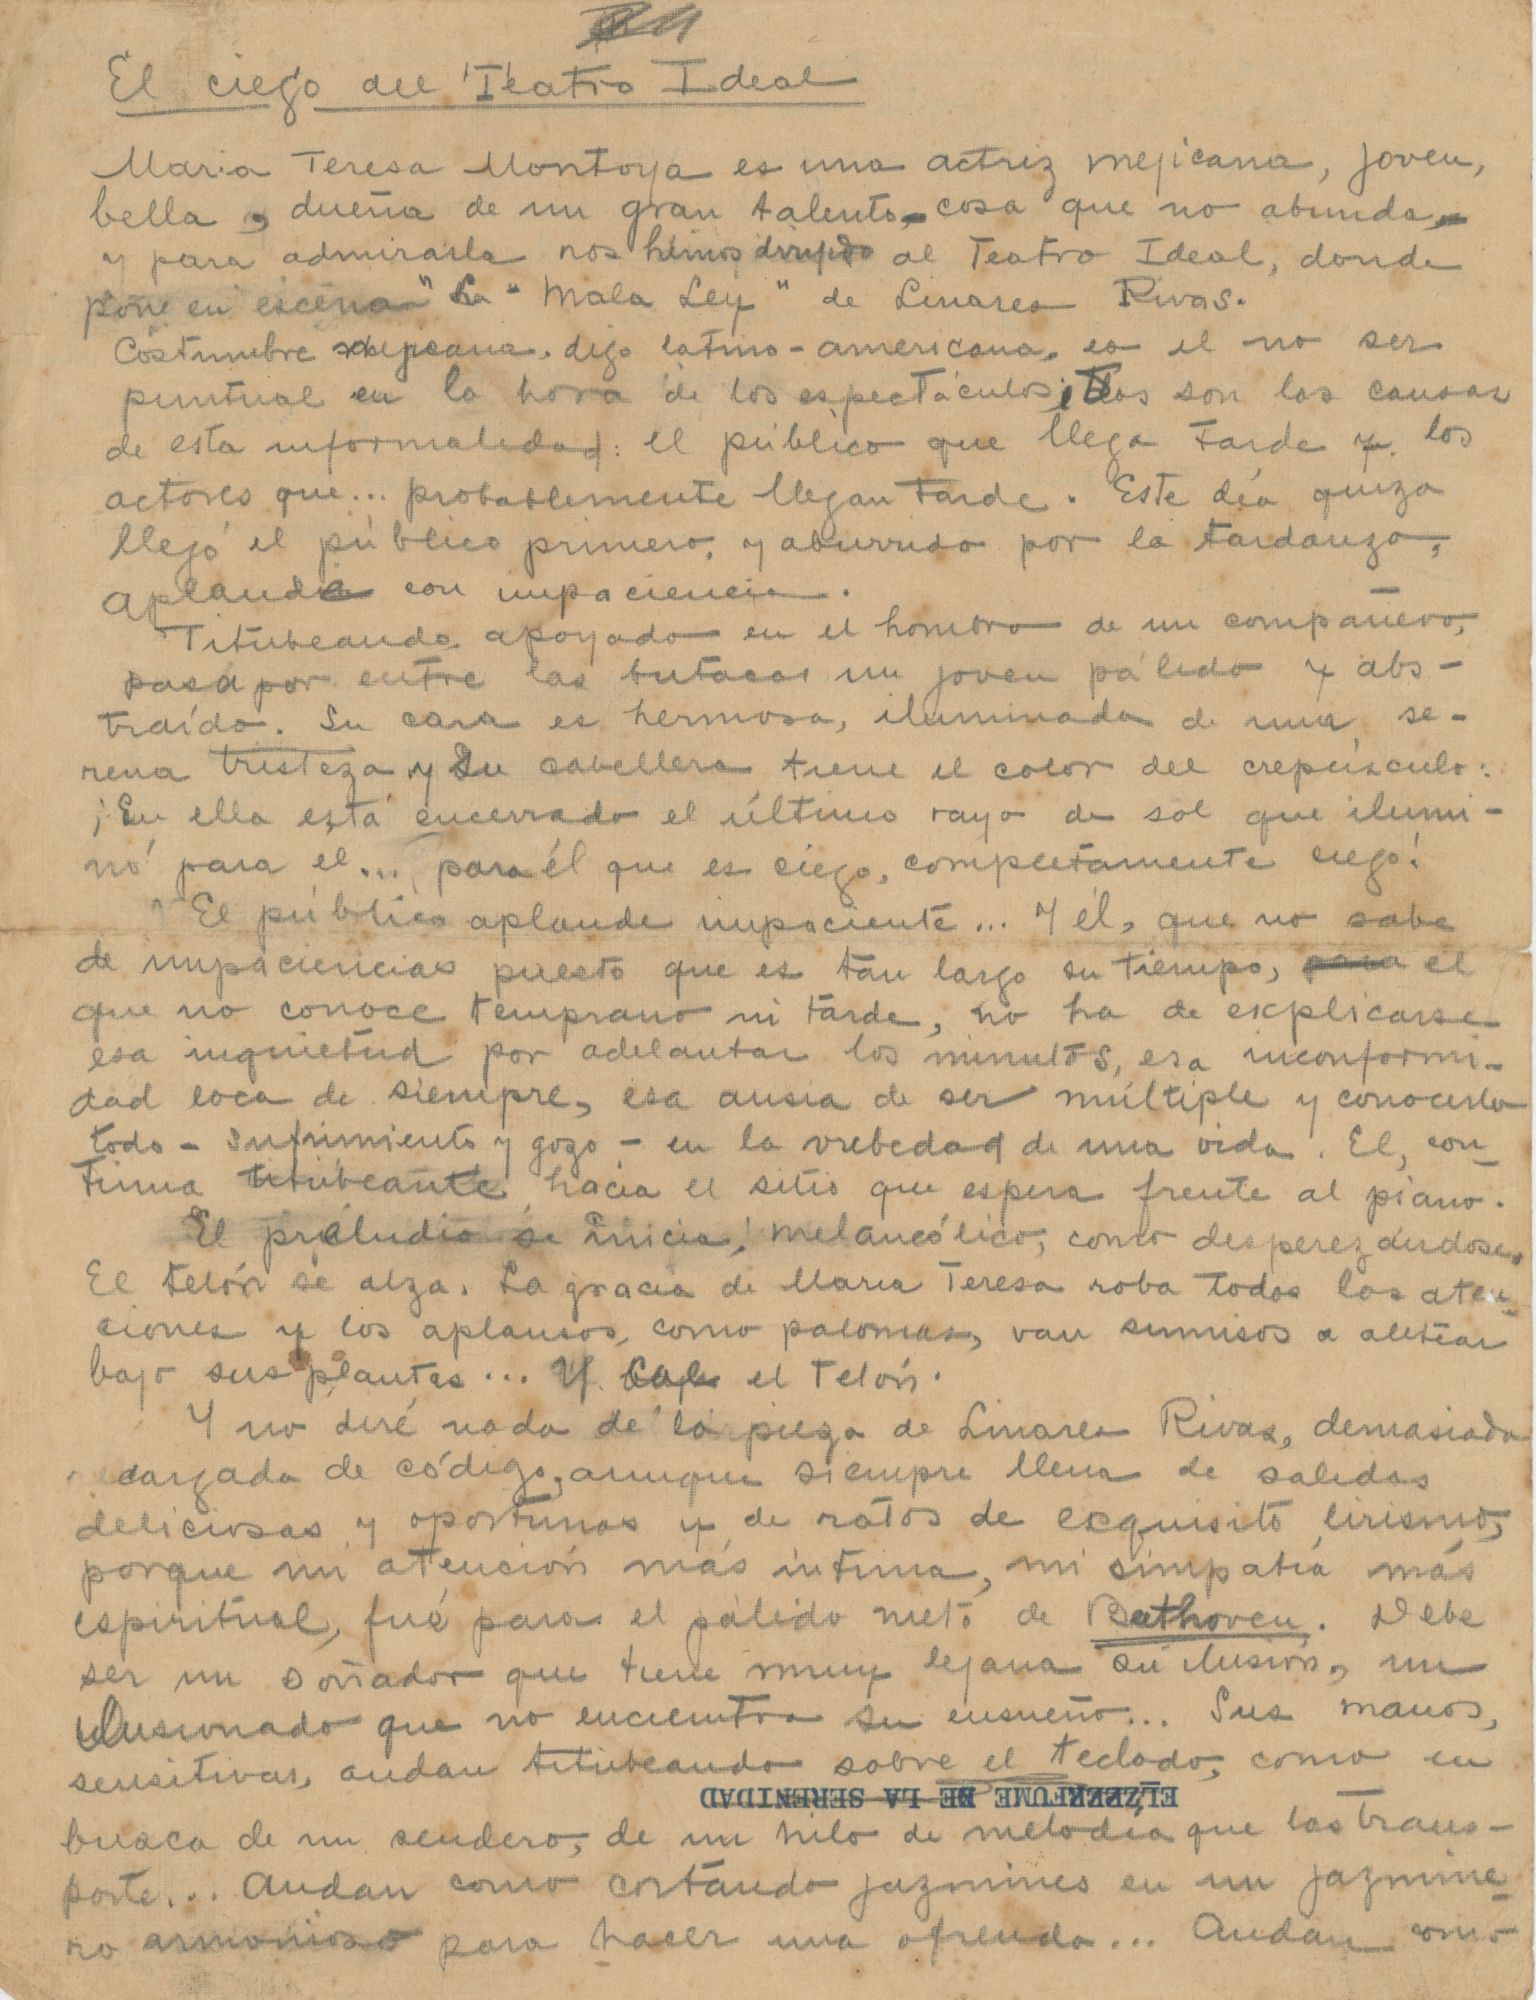 El ciego del Teatro Ideal
Maria Teresa Montoya es una actriz mejicana, joven,
bella, dueña de un gran talento, cosa que no abunda,
y para admirarla nos hemos dirigido al Teatro Ideal, donde
pone en escena "La Mala Ley" de Linares Rivas.
Costumbre mejicana, digo latino-americana, es el no ser
puntual en la hora de los espectáculos; dos son las causas
de esta informalidad: el público que llega tarde y los
actores que... probablemente llegan tarde. Este día quiza
llegó el público primero, y aburrido por la tardanza,
aplaude con impaciencia.
Titubeando apoyado en el hombro de un compañero,
pasa por entre las butacas un joven pálido y abs-
traído. Su cara es hermosa, iluminada de una se-
rena tristeza y su cabellera tiene el color del crepúsculo:
¡En ella está encerrado el último rayo de sol que ilumi-
nó para el... para él que es ciego, completamente ciego!
El público aplaude impaciente... Y él, que no sabe
de impaciencias puesto que es tan largo su tiempo, el
que no conoce temprano ni tarde, no ha de explicarse
esa inquietud por adelantar los minutos, esa inconformi-
dad loca de siempre, esa ansia de ser múltiple y conocerlo
todo - sufrimiento y gozo - en la brebedad de una vida. El, con-
tinua titubeante hacia el sitio que espera frente al piano.
El preludio se inicia, melancólico, como desperezándose.
El telón se alza. La gracia de Maria Teresa roba todas las aten-
ciones y los aplausos, como palomas, van sumisos a aletear
bajo sus plantas... Y cae el telón.
Y no diré nada de la pieza de Linares Rivas, demasiado
cargada de código, aunque siempre llena de salidas
deliciosas y oportunas y de ratos de exquisito lirismo,
porque mi atención más íntima, mi simpatía más
espiritual, fué para el pálido nieto de Bethoven. Debe
ser un soñador que tiene muy lejana su ilusión, un
ilusionado que no encuentra su ensueño... Sus manos,
sensitivas, andan titubeando sobre el teclado, como en
EL PERFUME DE LA SERENIDAD
busca de un sendero, de un hilo de melodía que las trans-
porte... Andan como cortando jazmines en un jazmine-
ro armonioso para hacer una ofrenda... Andan como